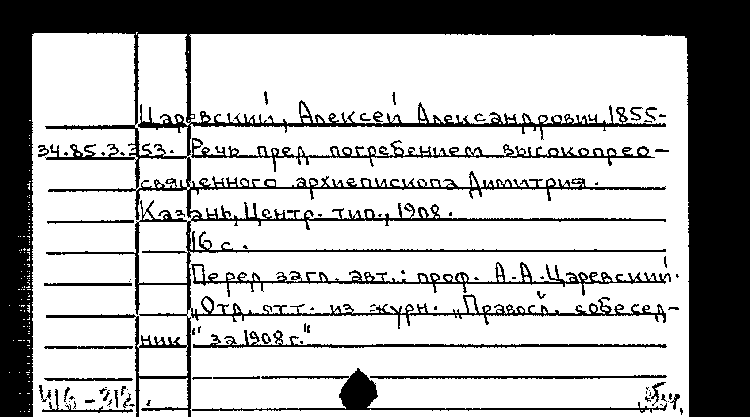 Царевский, Алексей Александрович, 1855-
34.85.3.253. Речь пред погребением высокопрео-
священного архиепископа Димитрия.
Казань, Центр. тип., 1908.
16 с.
Перед загл. авт.: проф. А.А.Царевский.
„Отд. отт. из журн. „Правосл. собесед-
ник“ за 1908 г."
416-312.